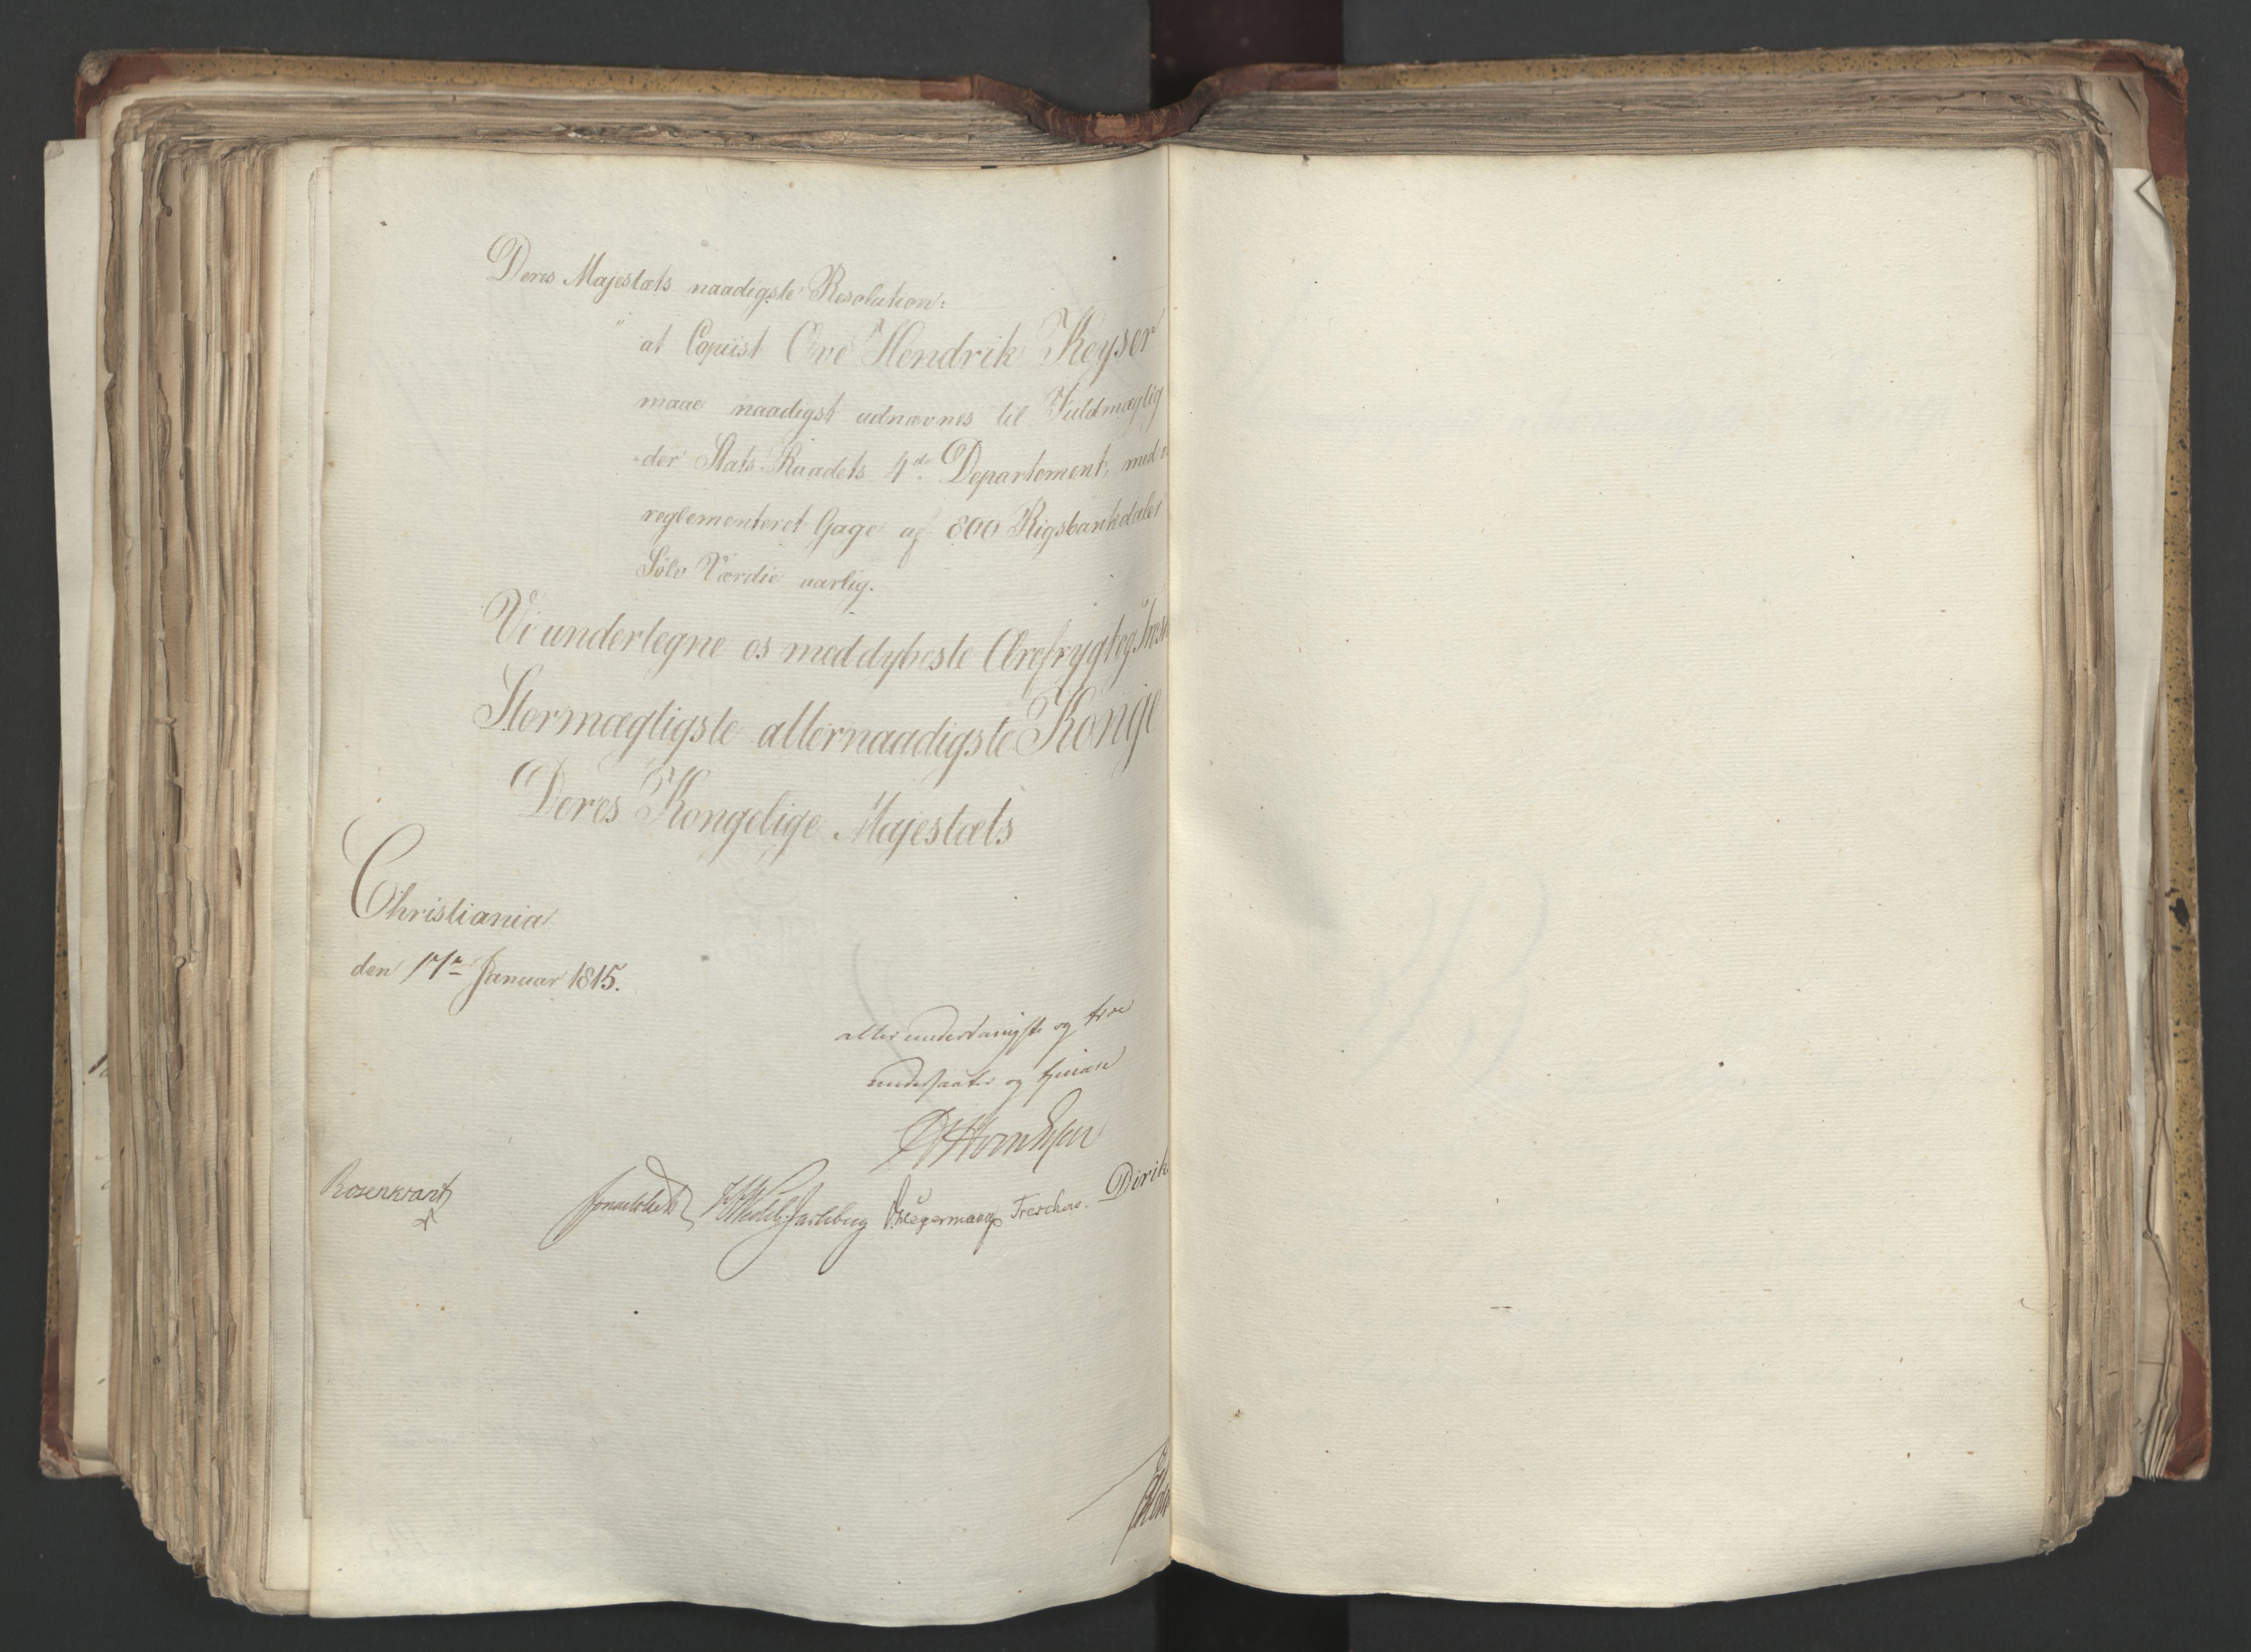 Deres Majestæts naadigste Resolution:
" at Copiist Ove Hendrik Keyser
maae naadigst udnævnes til Fuldmægtig
der Stats-Raadets 4de Departement, med
reglementeret Gage af 800 Rigsbankdaler
Sølv Værdie aarlig.
Vi undertegne os med dybeste Ærefrygt og
Stormægtigste allernaadigste Konge
Deres Kongelige Majestæts
Christiania
den 17de Januar 1815.
allerunderdanigste og troe
undersaatter og tjenere
Rosenkrantz Sommerhielm HWedel-Jarlsberg DHegermann Treschow. Dirik